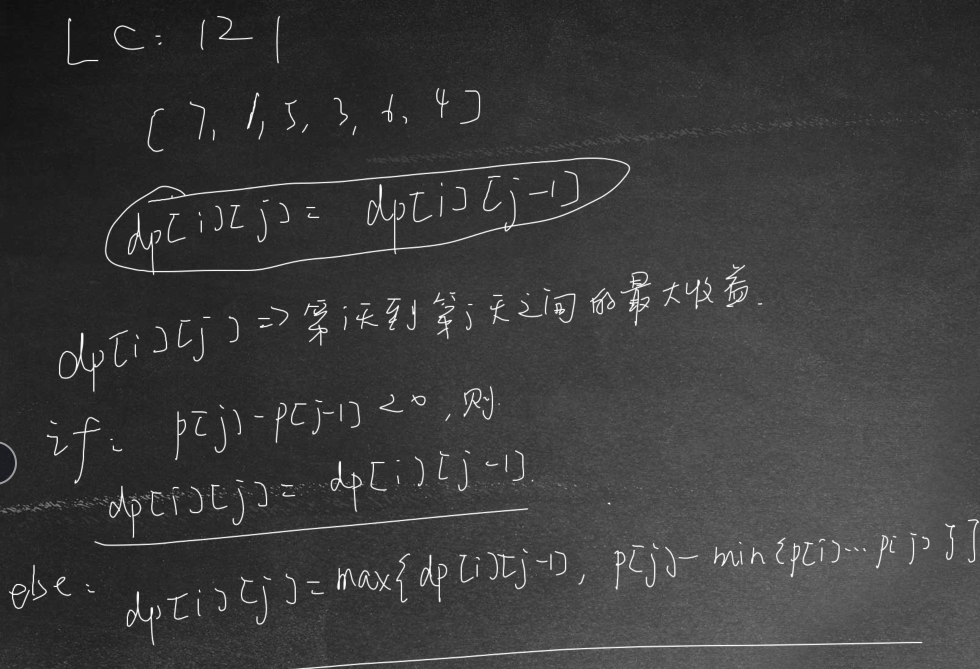 LC: 121
[7, 1, 5, 3, 6, 4]
dp[i][j] = dp[i][j-1]
dp[i][j] => 第i天到第j天之间的最大收益.
if: p[j]-p[j-1] <0, 则
dp[i][j] = dp[i][j-1].
else: dp[i][j] = max{dp[i][j-1], p[j]-min{p[i]...p[j]}}